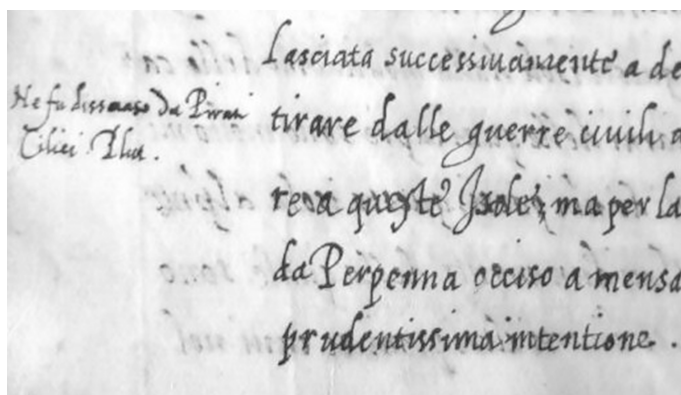 Ne fu dissuaso da Pirati
Cilici. Plut.
Lasciata successiuamente a de
tirare dalle guerre ciuili a
re a queste Isole, ma per la
da Perpenna occiso a mensa
prudentissima intentione.